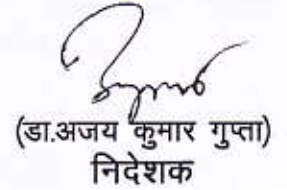 (डा.अजय कुमार गुप्ता)
निदेशक